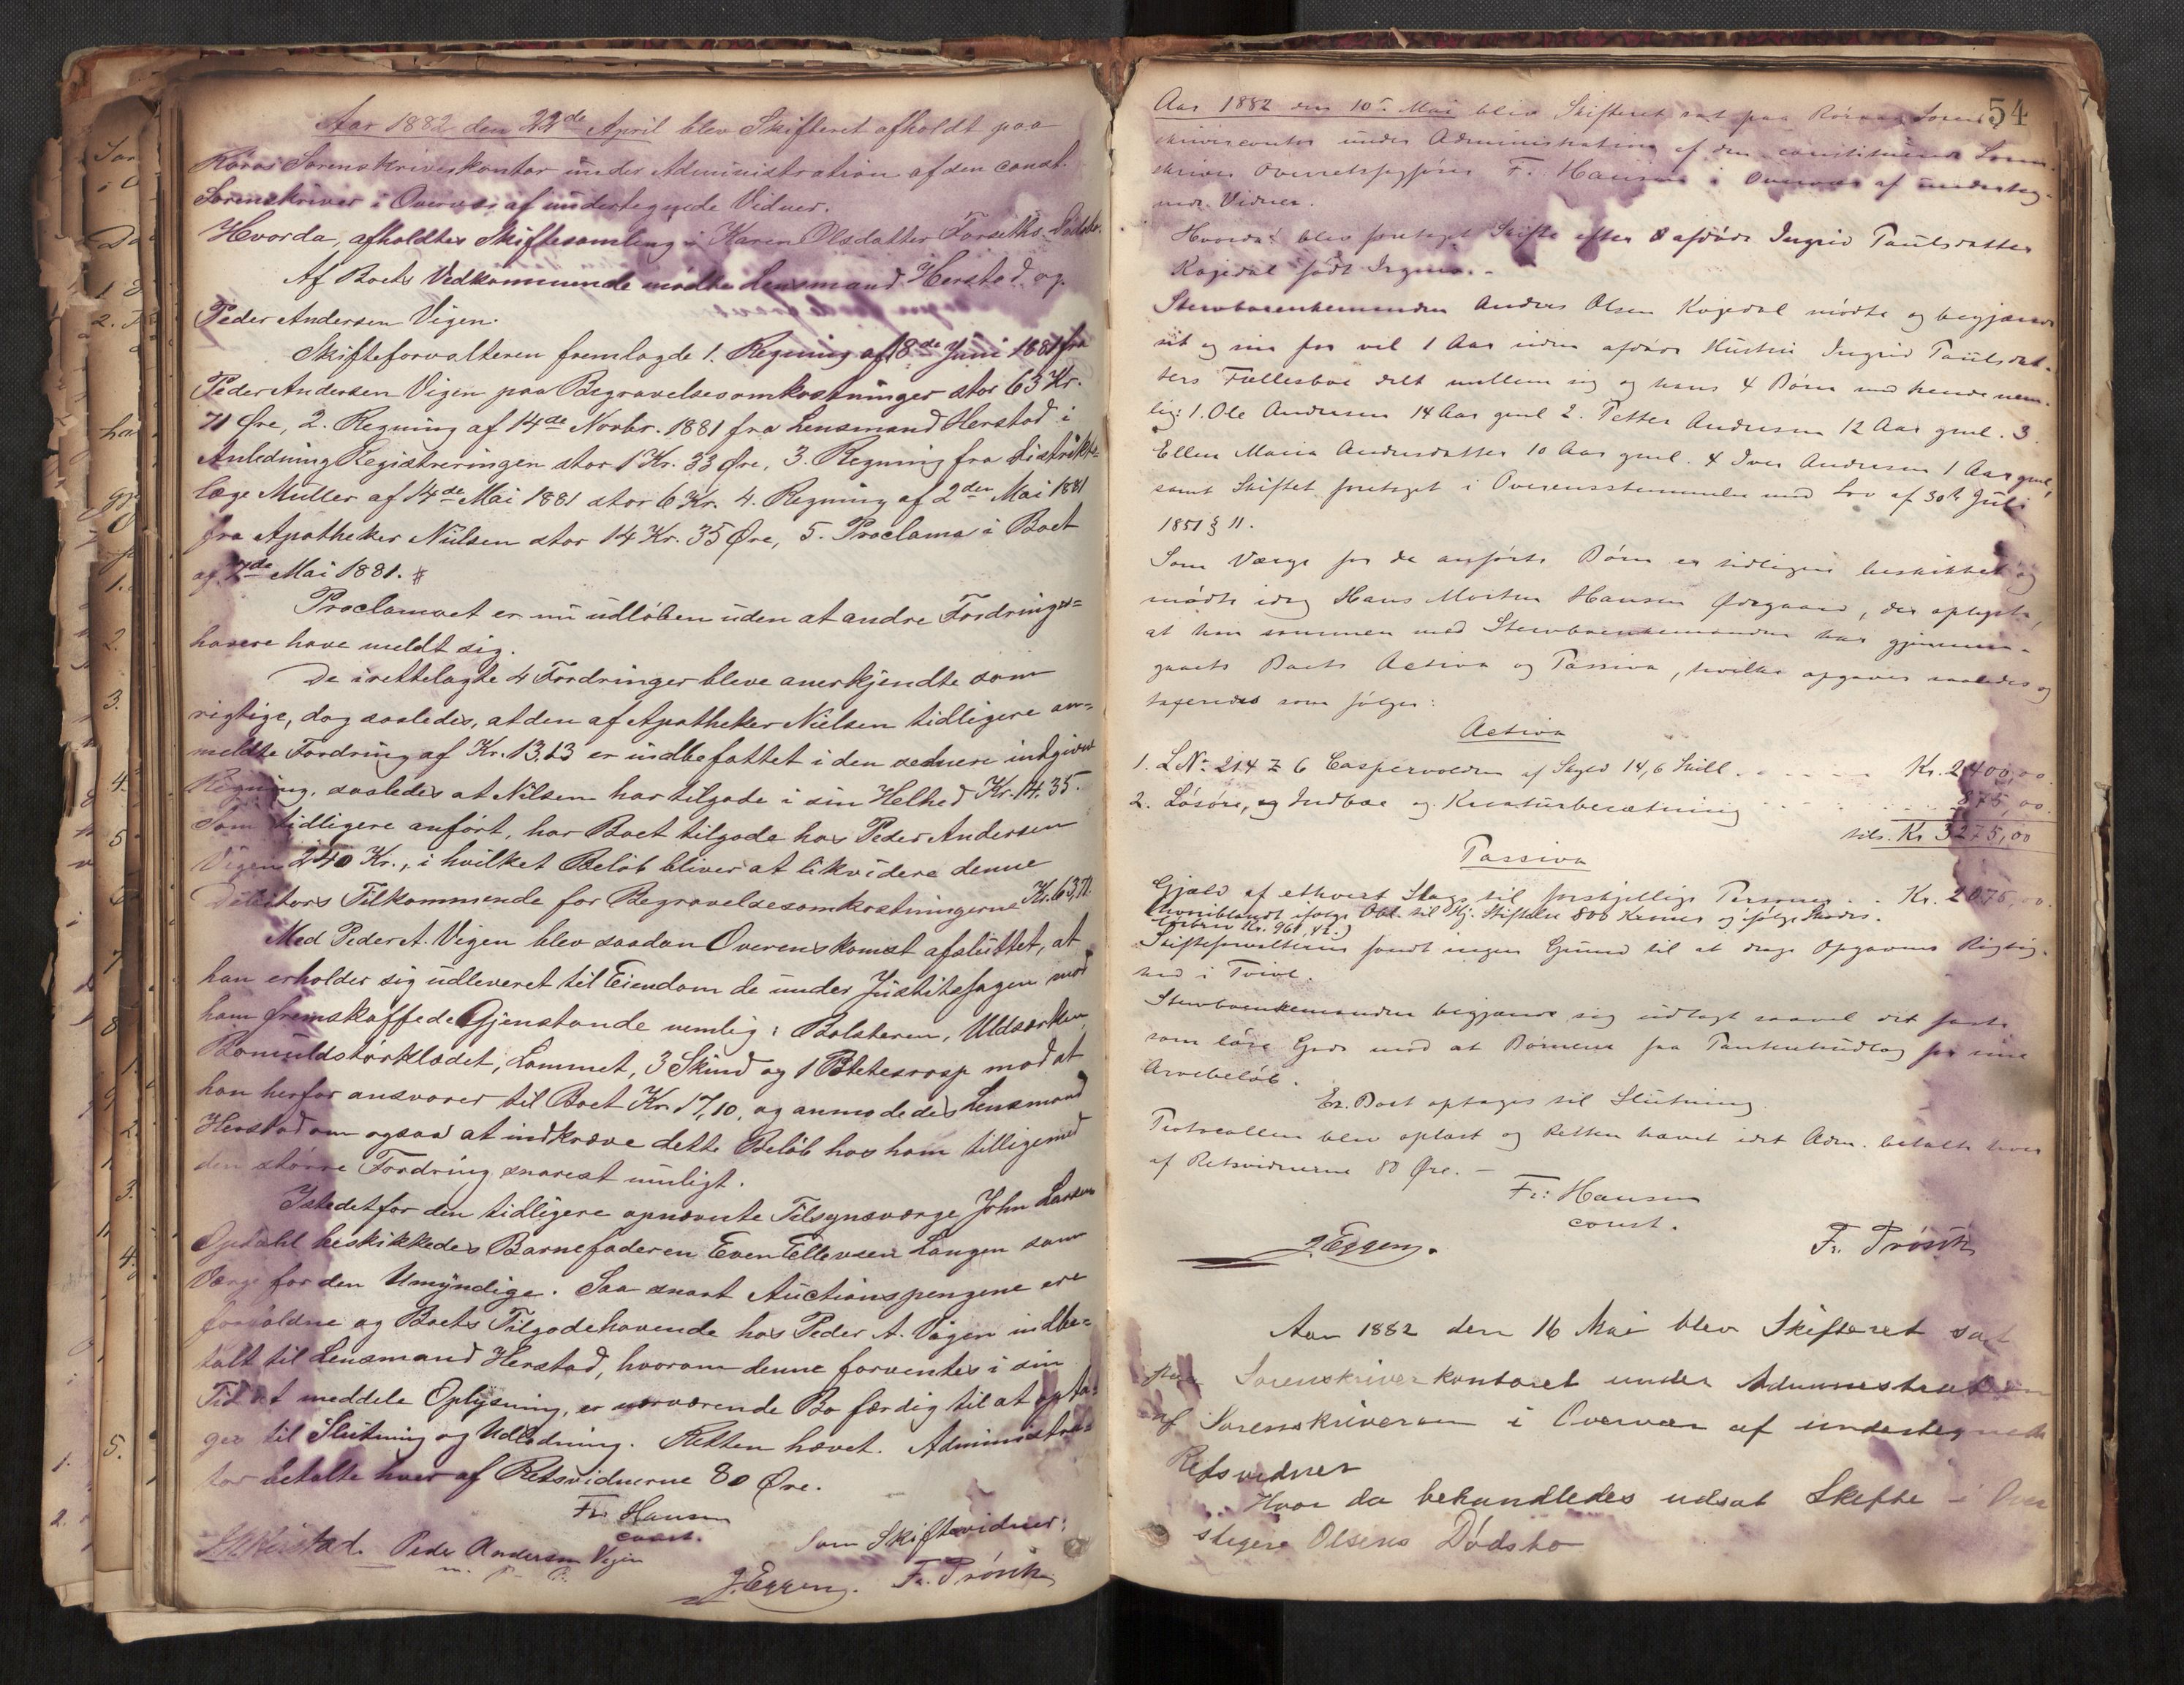 Aar 1882 den 22de April blev Skifteret afholdt paa
Röros Sorenskriverkontor under Administration af den const.
Sorenskriver i Overvær af undertegnede Vidner.
Hvorda, afholdtes Skiftesamling i Karen Olsdatter Forseths Dødsbo.
Af Boets Vedkommende mødte Lensmand Herstad og
Peder Andersen Vigen.
Skifteforvalteren fremlagde 1. Regning af 8de Juni 1881 fra
Peder Andersen Vigen paa Begravelsesomkostninger stor 63 Kr.
71 Øre, 2. Regning af 14de Novbr. 1881 fra Lensmand Herstad i
Anledning Registreringen stor 1 Kr. 33 Øre, 3. Regning fra Distrikts-
læge Müller af 14de Mai 1881 stor 6 Kr. 4. Regning af 2den Mai 1881
fra Apotheker Nielsen stor 14 Kr. 35 Øre, 5. Proclama i Boet
af 7de Mai 1881.
Proclamaet er nu udløben uden at andre Fordrings=
havere have meldt sig.
De i rettelagte 4 Fordringer bleve anerkjendte som
rigtige, dog saaledes, at den af Apotheker Nielsen tidligere an=
meldte Fordring af Kr. 13,13 er indbefattet i den senere indgivne
Regning, saaledes at Nilsen har tilgode i sin Helhed Kr. 14,35.
Som tidligere anført, har Boet tilgode hos Peder Andersen
Vigen 240 Kr., i hvilket Beløb bliver at likvidere denne
Debitors Tilkommende for Begravelsesomkostningerne Kr. 63,71.
Med Peder A. Vigen blev saadan Overenskomst afsluttet, at
han erholder sig udleveret til Eiendom de under Justitssagen mod
ham fremskaffede Gjenstande nemlig: Bolsteren, Uldsærken,
Bomuldstørklædet, Lommet, 3 Skind og 1 mod at
han herfor ansvarer til Boet Kr. 17,10, og anmodedes Lensmand
Herstad om ogsaa at indkræve dette Beløb hos ham tilligemed
den større Fordring snarest muligt.
Istedetfor den tidligere opnævnte Tilsynsværge John Larsen
Opdahl beskikkedes Barnefaderen Even Ellevsen Langen som
Værge for den Umyndige. Saa snart Auctionspengene ere
forfaldne og Boets Tilgodehavende hos Peder A. Vigen indbe=
talt til Lensmand Herstad, hvorom denne forventes i sin
Tid at meddele Oplysning, er nærværende Bo færdig til at opta=
ges til Slutning og Udlodning. Retten hævet. Administra=
tor betalte hver af Retsvidnerne 80 Øre.
Fr. Hansen
const.
Som Skiftevidner:
Herstad. Peder Andersen Vigen
m. p. P.
J. Eggen. Fr. Prösch
54
Aar 1882 den 10de Mai blev Skifteret sat paa Röraas Soren-
skrivercontor under Administration af den constituerede Soren-
skriver Overretssagfører F. Hansen i Overvær af underteg-
nede Vidner.
Hvorda blev foretaget Skifte efter afdøde Ingrid Paulsdatter
Kojedal født
Stervboenkemanden Anders Olsen Kojedal mødte og begjærede
sit og sin for vel 1 Aar siden afdøde Hustru Ingrid Paulsdat-
ters Fællesboe delt mellem sig og hans 4 Børn med hende nem-
lig: 1. Ole Andersen 14 Aar gml 2. Petter Andersen 12 Aar gml. 3.
Ellen Maria Andersdatter 10 Aar gml. 4 Iver Andersen 1 Aar gml,
samt Skiftet foretaget i Overensstemmelse med Lov af 30te Juli
1851 § 11.
Som Værge for de anførte Børn er tidligere beskikket og
mødte idag Hans Morten Hansen Ødegaard, der oplyste,
at han sammen med Stervboenkemanden har gjennem-
gaaet Boets Activa og Passiva, hvilke opgaves saaledes og
taxeredes som følger:
Activa
1. L.No. 214 6 Caspervolden af Skyld 14,6 Skill. Kr. 2400,00.
2. Løsøre, og Indboe og Kreaturbesætning 875,00.
tils. Kr 3275,00
Passiva
Gjæld af ethvert Slags til forskjellige Personer .. Kr. 2075,00.
(hvoriblandt ifølge Obl. til Hj. Stiftelse 800 Kroner og ifølge Skades.
Kr. 961,42.)
Skifteforvalteren fandt ingen Grund til at drage Opgavens Rigtig-
hed i Tvivl.
Stervboenkemanden begjærede sig udlagt saavel det faste
som løse Gods mod at Børnene faa Panteudlæg for sine
Arvebeløb.
Er. Boet optages til Slutning.
Protocollen blev oplæst og Retten hævet idet Adm. betalte hver
af Retsvidnerne 80 Øre. —
Fr: Hansen
const.
J. Eggen. Fr. Prösch
Aar 1882 den 16 Mai blev Skifteret sat
paa Sorenskriverkontoret under Administration
af Sorenskriveren i Overvær af undertegnede
Retsvidner
Hvor da behandledes udsat Skifte i Over
stigere Olsens Dødsbo